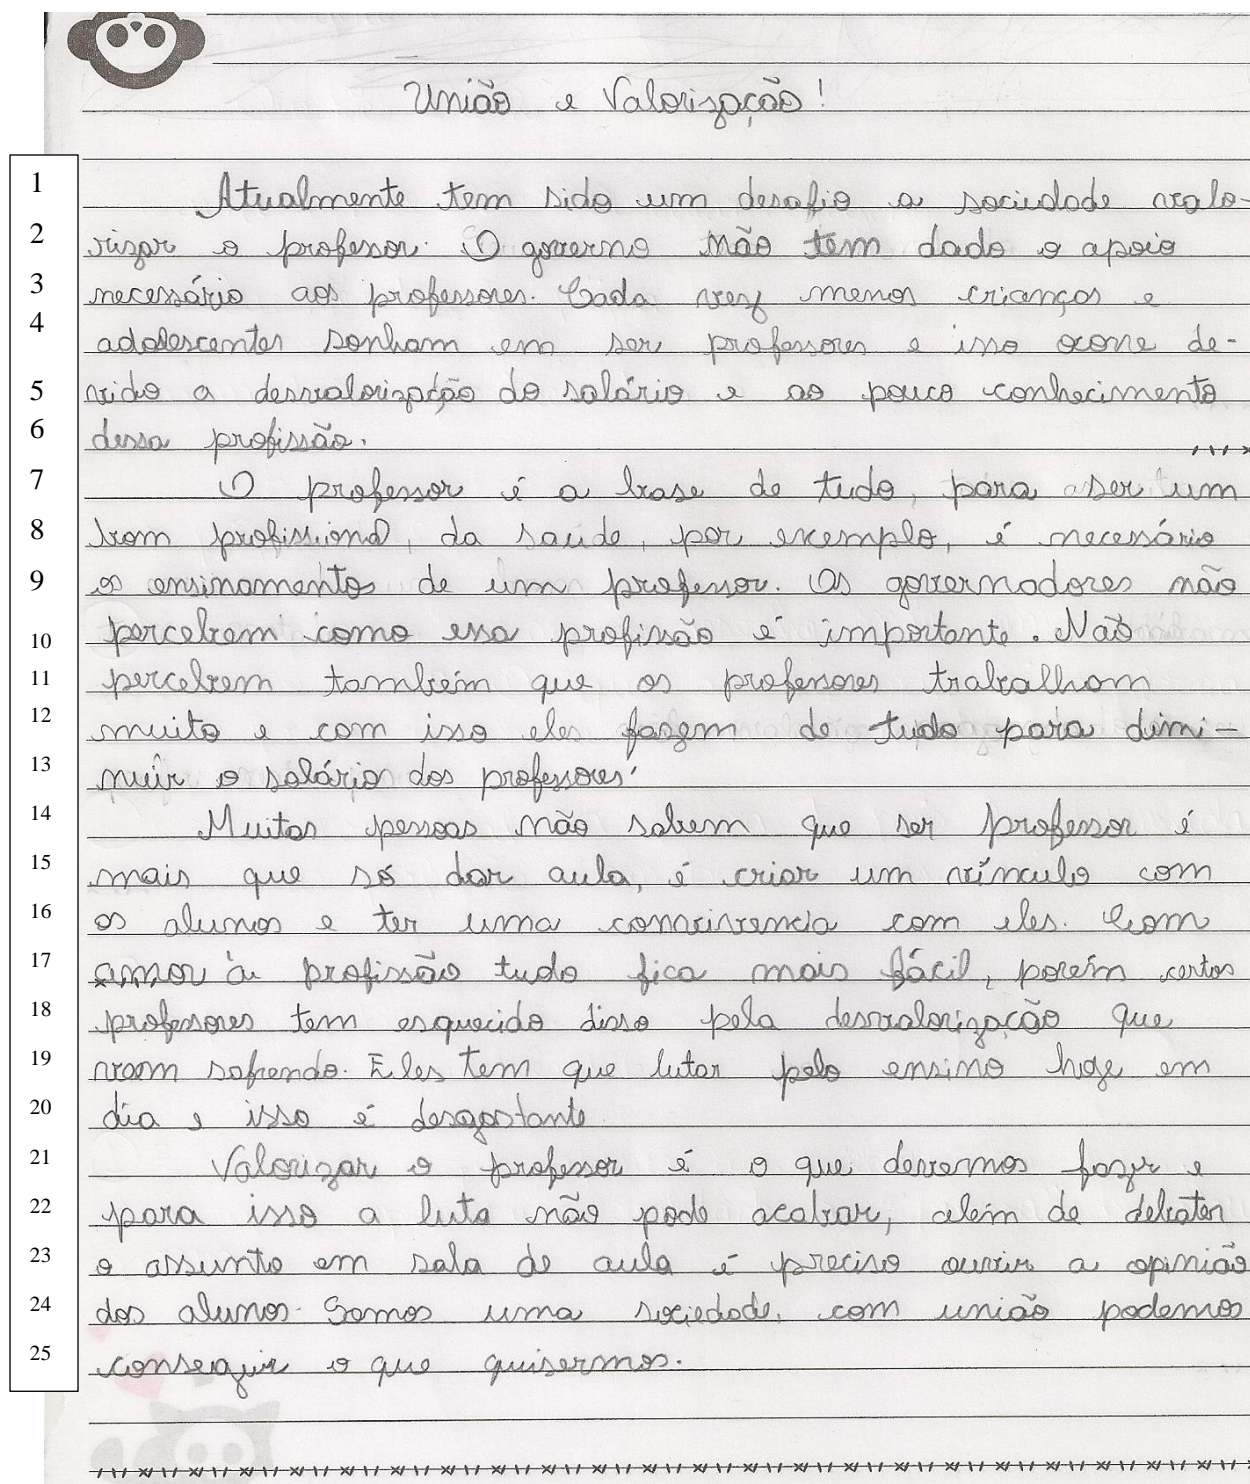 União e Valorização!
1 Atualmente tem sido um desafio a sociedade valo-
2 rizar o professor. O governo não tem dado o apoio
3 necessário aos professores. Cada vez menos crianças e
4 adolescentes sonham em ser professores e isso ocorre de-
5 vido a desvalorização do salário e ao pouco conhecimento
6 dessa profissão.
7 O professor é a base de tudo, para ser um
8 bom profissional, da saúde, por exemplo, é necessário
9 os ensinamentos de um professor. Os governadores não
10 percebem como essa profissão é importante. Não
11 percebem também que os professores trabalham
12 muito e com isso eles fazem de tudo para dimi-
13 nuir o salário dos professores.
14 Muitas pessoas não sabem que ser professor é
15 mais que só dar aula, é criar um vínculo com
16 os alunos e ter uma convivencia com eles. Com
17 amor à profissão tudo fica mais fácil, porém certos
18 professores tem esquecido disso pela desvalorização que
19 vem sofrendo. Eles tem que lutar pelo ensino hoje em
20 dia e isso é desgastante
21 Valorizar o professor é o que devemos fazer e
22 para isso a luta não pode acabar, além de debater
23 o assunto em sala de aula é preciso ouvir a opinião
24 dos alunos. Somos uma sociedade, com união podemos
25 conseguir o que quisermos.